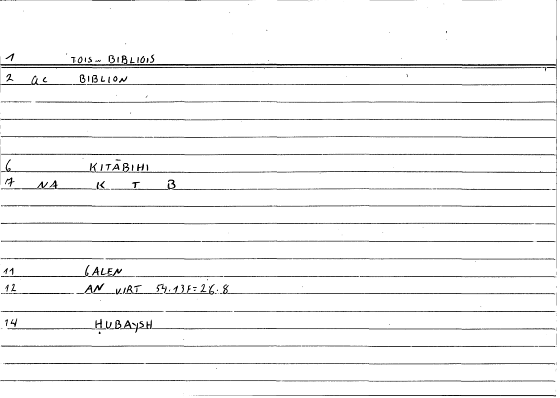 1 TOIS - BIBLIOIS
2 QC BIBLION
6 KITĀBIHI
7 NA K T B
11 GALEN
12 AN VIRT 54.13F=26.8
14 ḤUBAYSH